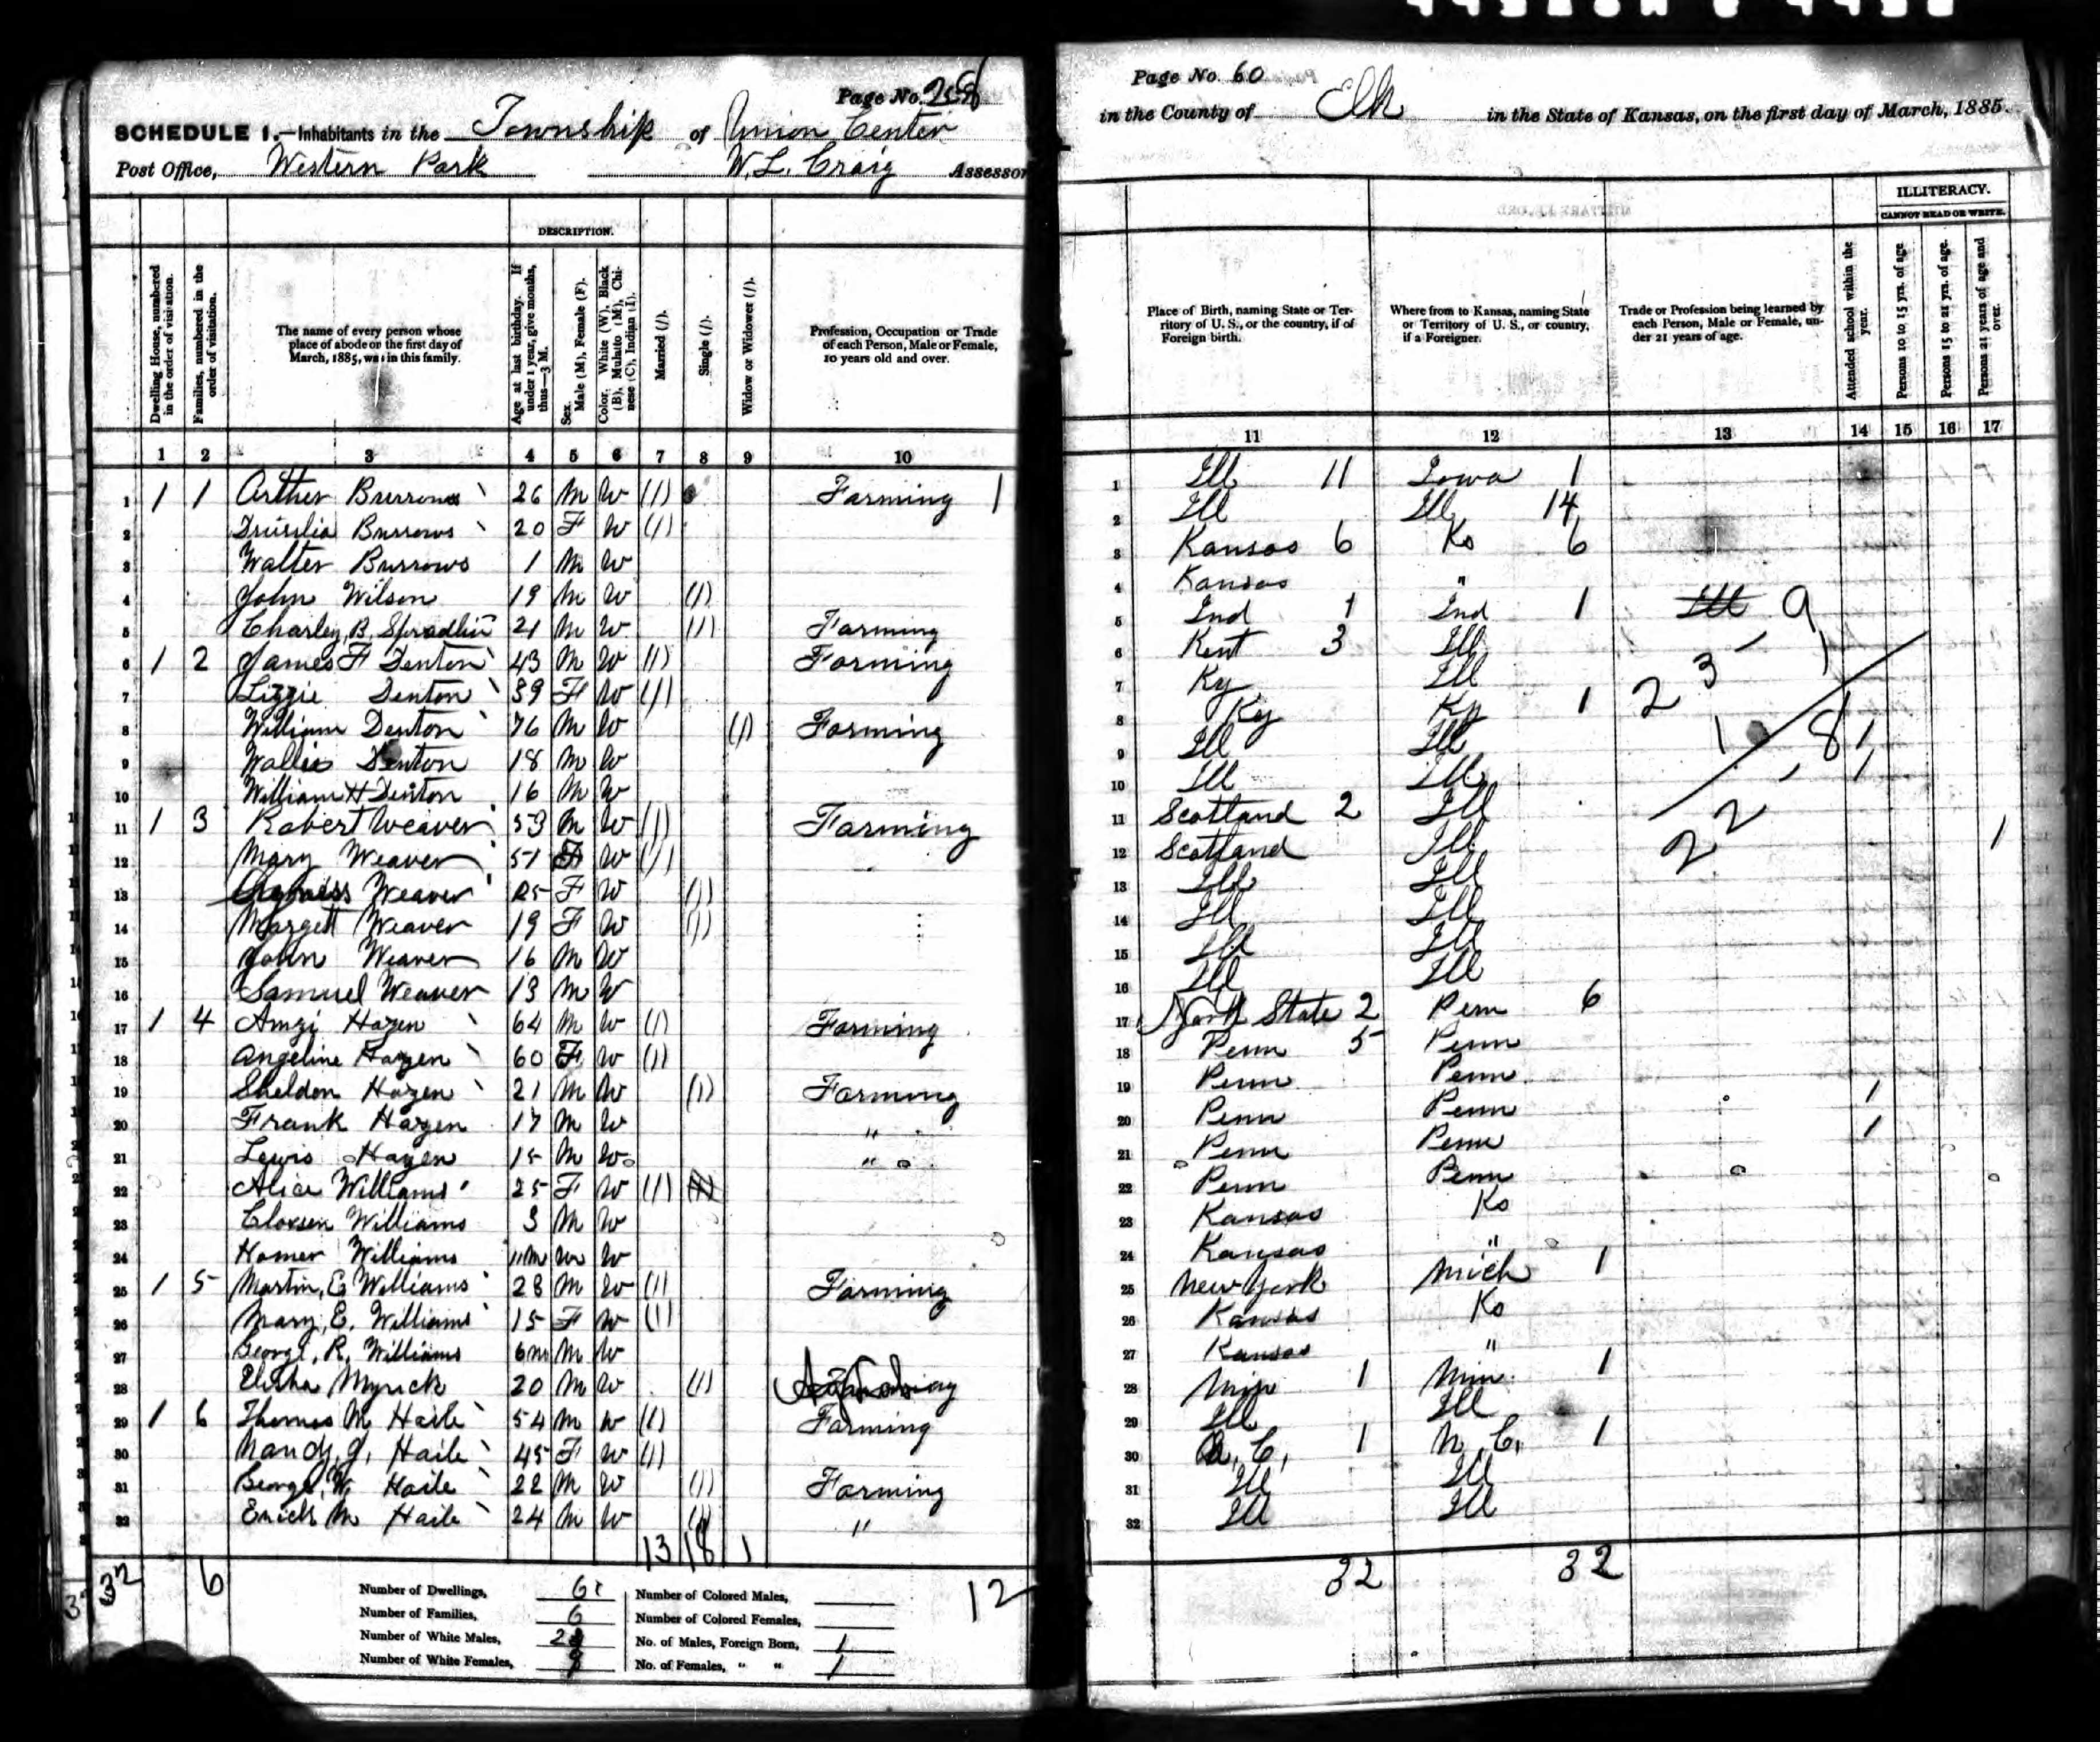 Page No. 258
SCHEDULE 1.—Inhabitants in the Township of Union Center
Post Office, Western Park W. L. Craig Assessor
DESCRIPTION.
Dwelling House, numbered in the order of visitation.
Families, numbered in the order of visitation.
The name of every person whose place of abode on the first day of March, 1885, was in this family.
Age at last birthday. If under 1 year, give months, thus—3 M.
Sex. Male (M), Female (F).
Color. White (W), Black (B), Mulatto (M), Chinese (C), Indian (I).
Married (/).
Single (/).
Widow or Widower (/).
Profession, Occupation or Trade of each Person, Male or Female, 10 years old and over.
1 2 3 4 5 6 7 8 9 10
1 1 1 Arther Burrows 26 M W (1) Farming 1
2 Drusilia Burrows 20 F W (1)
3 Walter Burrows 1 M W
4 John Wilson 19 M W (1)
5 Charley, B. Spradlin 21 M W (1) Farming
6 1 2 James F Denton 43 M W (1) Farming
7 Lizzie Denton 39 F W (1)
8 William Denton 76 M W (1) Farming
9 Wallis Denton 18 M W
10 William H Denton 16 M W
11 1 3 Robert Weaver 53 M W (1) Farming
12 Mary Weaver 51 F W (1)
13 Weaver 25 F W (1)
14 Margett Weaver 19 F W (1)
15 John Weaver 16 M W
16 Samuel Weaver 13 M W
17 1 4 Amzi Hazen 64 M W (1) Farming
18 Angeline Hazen 60 F W (1)
19 Sheldon Hazen 21 M W (1) Farming
20 Frank Hazen 17 M W "
21 Lewis Hazen 15 M W "
22 Alice Williams 25 F W (1)
23 Cloxsen Williams 3 M W
24 Homer Williams 11m m W
25 1 5 Martin, E Williams 28 M W (1) Farming
26 Mary, E. Williams 15 F W (1)
27 George, R. Williams 6m M W
28 Elisha Myrick 20 M W (1)
29 1 6 Thomas M Haile 54 M W (1) Farming
30 Nancy, J. Haile 45 F W (1)
31 George, W. Haile 22 M W (1) Farming
32 M Haile 24 M W (1) "
13 18 1
32 6 12
Number of Dwellings, 6
Number of Families, 6
Number of White Males,
Number of White Females,
Number of Colored Males,
Number of Colored Females,
No. of Males, Foreign Born, 1
No. of Females, " " 1
Page No. 60
in the County of Elk in the State of Kansas, on the first day of March, 1885.
ILLITERACY.
CANNOT READ OR WRITE.
Place of Birth, naming State or Territory of U. S., or the country, if of Foreign birth.
Where from to Kansas, naming State or Territory of U. S., or country, if a Foreigner.
Trade or Profession being learned by each Person, Male or Female, under 21 years of age.
Attended school within the year.
Persons 10 to 15 yrs. of age
Persons 15 to 21 yrs. of age.
Persons 21 years of age and over.
11 12 13 14 15 16 17
1 Ill 11 Iowa 1
2 Ill Ill 14
3 Kansas 6 Ks 6
4 Kansas "
5 Ind 1 Ind 1 Ill 9
6 Kent 3 Ill
7 Ky Ill
8 Ky Ky 1
9 Ill Ill 1
10 Ill Ill 1
11 Scotland 2 Ill
12 Scotland Ill 1
13 Ill Ill
14 Ill Ill
15 Ill Ill
16 Ill Ill
17 N York State 2 Penn 6
18 Penn 5 Penn
19 Penn Penn
20 Penn Penn 1
21 Penn Penn 1
22 Penn Penn
23 Kansas Ks
24 Kansas "
25 New York Mich 1
26 Kansas Ks
27 Kansas "
28 Min 1 Min 1
29 Ill Ill
30 N. C. 1 N. C. 1
31 Ill Ill
32 Ill Ill
32 32